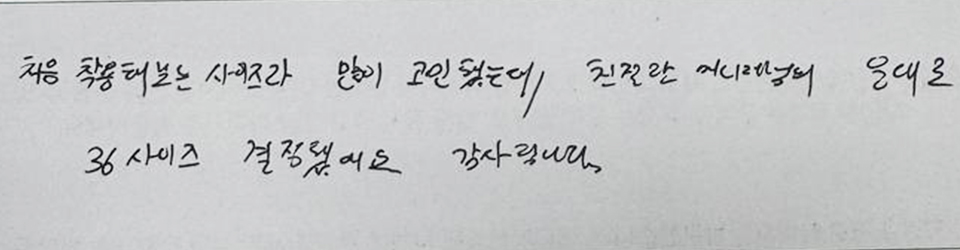 처음 착용해보는 사이즈라 많이 고민했는데, 친절한 매니저님의 응대로
36 사이즈 결정했어요 감사합니다.